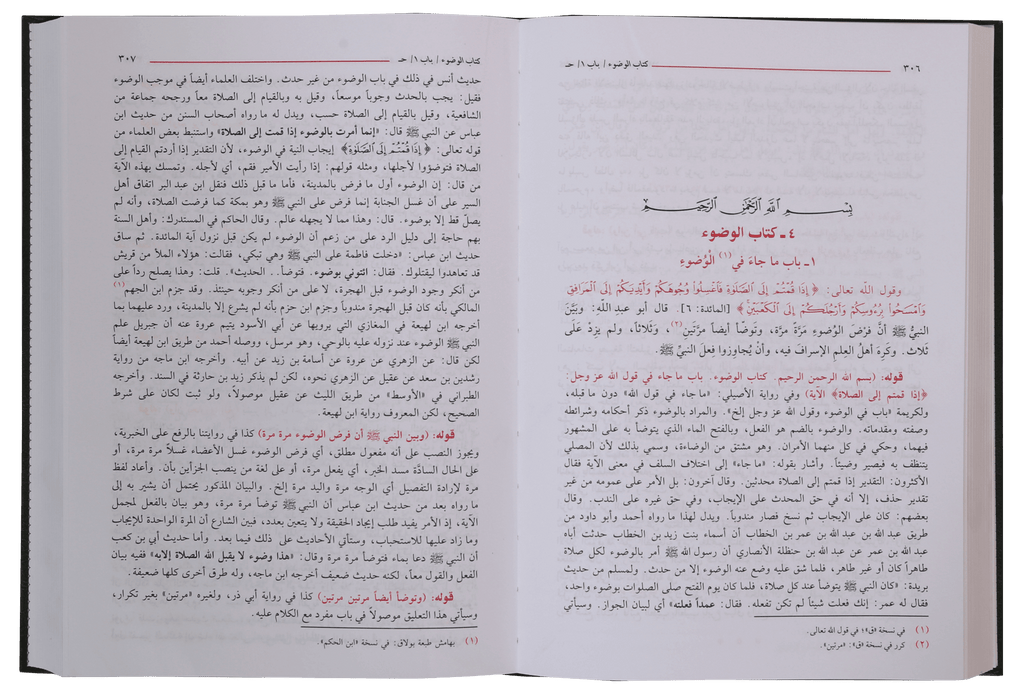 ٣٠٦
كتاب الوضوء / باب ١/ حـ
بسم الله الرحمن الرحيم
٤ ـ كتاب الوضوء
١ ـ باب ما جاء في (١) الْوُضوءِ
وقول اللَّه تعالى: ﴿إِذَا قُمْتُمْ إِلَى الصَّلَاةِ فَاغْسِلُوا وُجُوهَكُمْ وَأَيْدِيَكُمْ إِلَى الْمَرَافِقِ
وَامْسَحُوا بِرُءُوسِكُمْ وَأَرْجُلَكُمْ إِلَى الْكَعْبَيْنِ﴾ [المائدة: ٦]. قال أبو عبدِ اللَّهِ: وبيَّنَ
النبيُّ ﷺ أنَّ فرْضَ الوُضوءِ مَرَّةً مرَّة، وتَوضَّأ أيضاً مرَّتينِ(٢)، وثَلاثاً، ولم يزِدْ عَلَى
ثَلاث. وكَرِهَ أهلُ العِلمِ الإسرافَ فيه، وأنْ يُجاوِزوا فِعلَ النبيِّ ﷺ.
قوله: (بسم الله الرحمن الرحيم. كتاب الوضوء. باب ما جاء في قول الله عز وجل:
﴿إذا قمتم إلى الصلاة﴾ الآية) وفي رواية الأصيلي: «ما جاء في قول الله» دون ما قبله،
ولكريمة «باب في الوضوء وقول الله عز وجل إلخ». والمراد بالوضوء ذكر أحكامه وشرائطه
وصفته ومقدماته. والوضوء بالضم هو الفعل، وبالفتح الماء الذي يتوضأ به على المشهور
فيهما، وحكي في كل منهما الأمران. وهو مشتق من الوضاءة، وسمي بذلك لأن المصلي
يتنظف به فيصير وضيئاً. وأشار بقوله: «ما جاء» إلى اختلاف السلف في معنى الآية فقال
الأكثرون: التقدير إذا قمتم إلى الصلاة محدثين. وقال آخرون: بل الأمر على عمومه من غير
تقدير حذف، إلا أنه في حق المحدث على الإيجاب، وفي حق غيره على الندب. وقال
بعضهم: كان على الإيجاب ثم نسخ فصار مندوباً. ويدل لهذا ما رواه أحمد وأبو داود من
طريق عبد الله بن عبد الله بن عمر بن الخطاب أن أسماء بنت زيد بن الخطاب حدثت أباه
عبد الله بن عمر عن عبد الله بن حنظلة الأنصاري أن رسول الله ﷺ أمر بالوضوء لكل صلاة
طاهراً كان أو غير طاهر، فلما شق عليه وضع عنه الوضوء إلا من حدث. ولمسلم من حديث
بريدة: «كان النبي ﷺ يتوضأ عند كل صلاة، فلما كان يوم الفتح صلى الصلوات بوضوء واحد،
فقال له عمر: إنك فعلت شيئاً لم تكن تفعله. فقال: عمداً فعلته» أي لبيان الجواز. وسيأتي
(١) في نسخة «ق»: في قول الله تعالى.
(٢) كرر في نسخة «ق»: «مرتين».
كتاب الوضوء / باب ١/ حـ
٣٠٧
حديث أنس في ذلك في باب الوضوء من غير حدث. واختلف العلماء أيضاً في موجب الوضوء
فقيل: يجب بالحدث وجوباً موسعاً، وقيل به وبالقيام إلى الصلاة معاً ورجحه جماعة من
الشافعية، وقيل بالقيام إلى الصلاة حسب، ويدل له ما رواه أصحاب السنن من حديث ابن
عباس عن النبي ﷺ قال: «إنما أمرت بالوضوء إذا قمت إلى الصلاة» واستنبط بعض العلماء من
قوله تعالى: ﴿إِذَا قُمْتُمْ إِلَى الصَّلَاةِ﴾ إيجاب النية في الوضوء، لأن التقدير إذا أردتم القيام إلى
الصلاة فتوضؤوا لأجلها، ومثله قولهم: إذا رأيت الأمير فقم، أي لأجله. وتمسك بهذه الآية
من قال: إن الوضوء أول ما فرض بالمدينة، فأما ما قبل ذلك فنقل ابن عبد البر اتفاق أهل
السير على أن غسل الجنابة إنما فرض على النبي ﷺ وهو بمكة كما فرضت الصلاة، وأنه لم
يصل قط إلا بوضوء. قال: وهذا مما لا يجهله عالم. وقال الحاكم في المستدرك: وأهل السنة
بهم حاجة إلى دليل الرد على من زعم أن الوضوء لم يكن قبل نزول آية المائدة. ثم ساق
حديث ابن عباس: «دخلت فاطمة على النبي ﷺ وهي تبكي، فقالت: هؤلاء الملأ من قريش
قد تعاهدوا ليقتلوك. فقال: ائتوني بوضوء. فتوضأ.. الحديث». قلت: وهذا يصلح رداً على
من أنكر وجود الوضوء قبل الهجرة، لا على من أنكر وجوبه حينئذ. وقد جزم ابن الجهم(١)
المالكي بأنه كان قبل الهجرة مندوباً وجزم ابن حزم بأنه لم يشرع إلا بالمدينة، ورد عليهما بما
أخرجه ابن لهيعة في المغازي التي يرويها عن أبي الأسود يتيم عروة عنه أن جبريل علم
النبي ﷺ الوضوء عند نزوله عليه بالوحي، وهو مرسل، ووصله أحمد من طريق ابن لهيعة أيضاً
لكن قال: عن الزهري عن عروة عن أسامة بن زيد عن أبيه. وأخرجه ابن ماجه من رواية
رشدين بن سعد عن عقيل عن الزهري نحوه، لكن لم يذكر زيد بن حارثة في السند. وأخرجه
الطبراني في «الأوسط» من طريق الليث عن عقيل موصولاً، ولو ثبت لكان على شرط
الصحيح، لكن المعروف رواية ابن لهيعة.
قوله: (وبين النبي ﷺ أن فرض الوضوء مرة مرة) كذا في روايتنا بالرفع على الخبرية،
ويجوز النصب على أنه مفعول مطلق، أي فرض الوضوء غسل الأعضاء غسلاً مرة مرة، أو
على الحال السادّة مسد الخبر، أي يفعل مرة، أو على لغة من ينصب الجزأين بأن. وأعاد لفظ
مرة لإرادة التفصيل أي الوجه مرة واليد مرة إلخ. والبيان المذكور يحتمل أن يشير به إلى
ما رواه بعد من حديث ابن عباس أن النبي ﷺ توضأ مرة مرة، وهو بيان بالفعل لمجمل
الآية، إذ الأمر يفيد طلب إيجاد الحقيقة ولا يتعين بعدد، فبين الشارع أن المرة الواحدة للإيجاب
وما زاد عليها للاستحباب، وستأتي الأحاديث على ذلك فيما بعد. وأما حديث أبي بن كعب
أن النبي ﷺ دعا بماء فتوضأ مرة مرة وقال: «هذا وضوء لا يقبل الله الصلاة إلا به» ففيه بيان
الفعل والقول معاً، لكنه حديث ضعيف أخرجه ابن ماجه، وله طرق أخرى كلها ضعيفة.
قوله: (وتوضأ أيضاً مرتين مرتين) كذا في رواية أبي ذر، ولغيره «مرتين» بغير تكرار،
وسيأتي هذا التعليق موصولاً في باب مفرد مع الكلام عليه.
(١) بهامش طبعة بولاق: في نسخة «ابن الحكم».